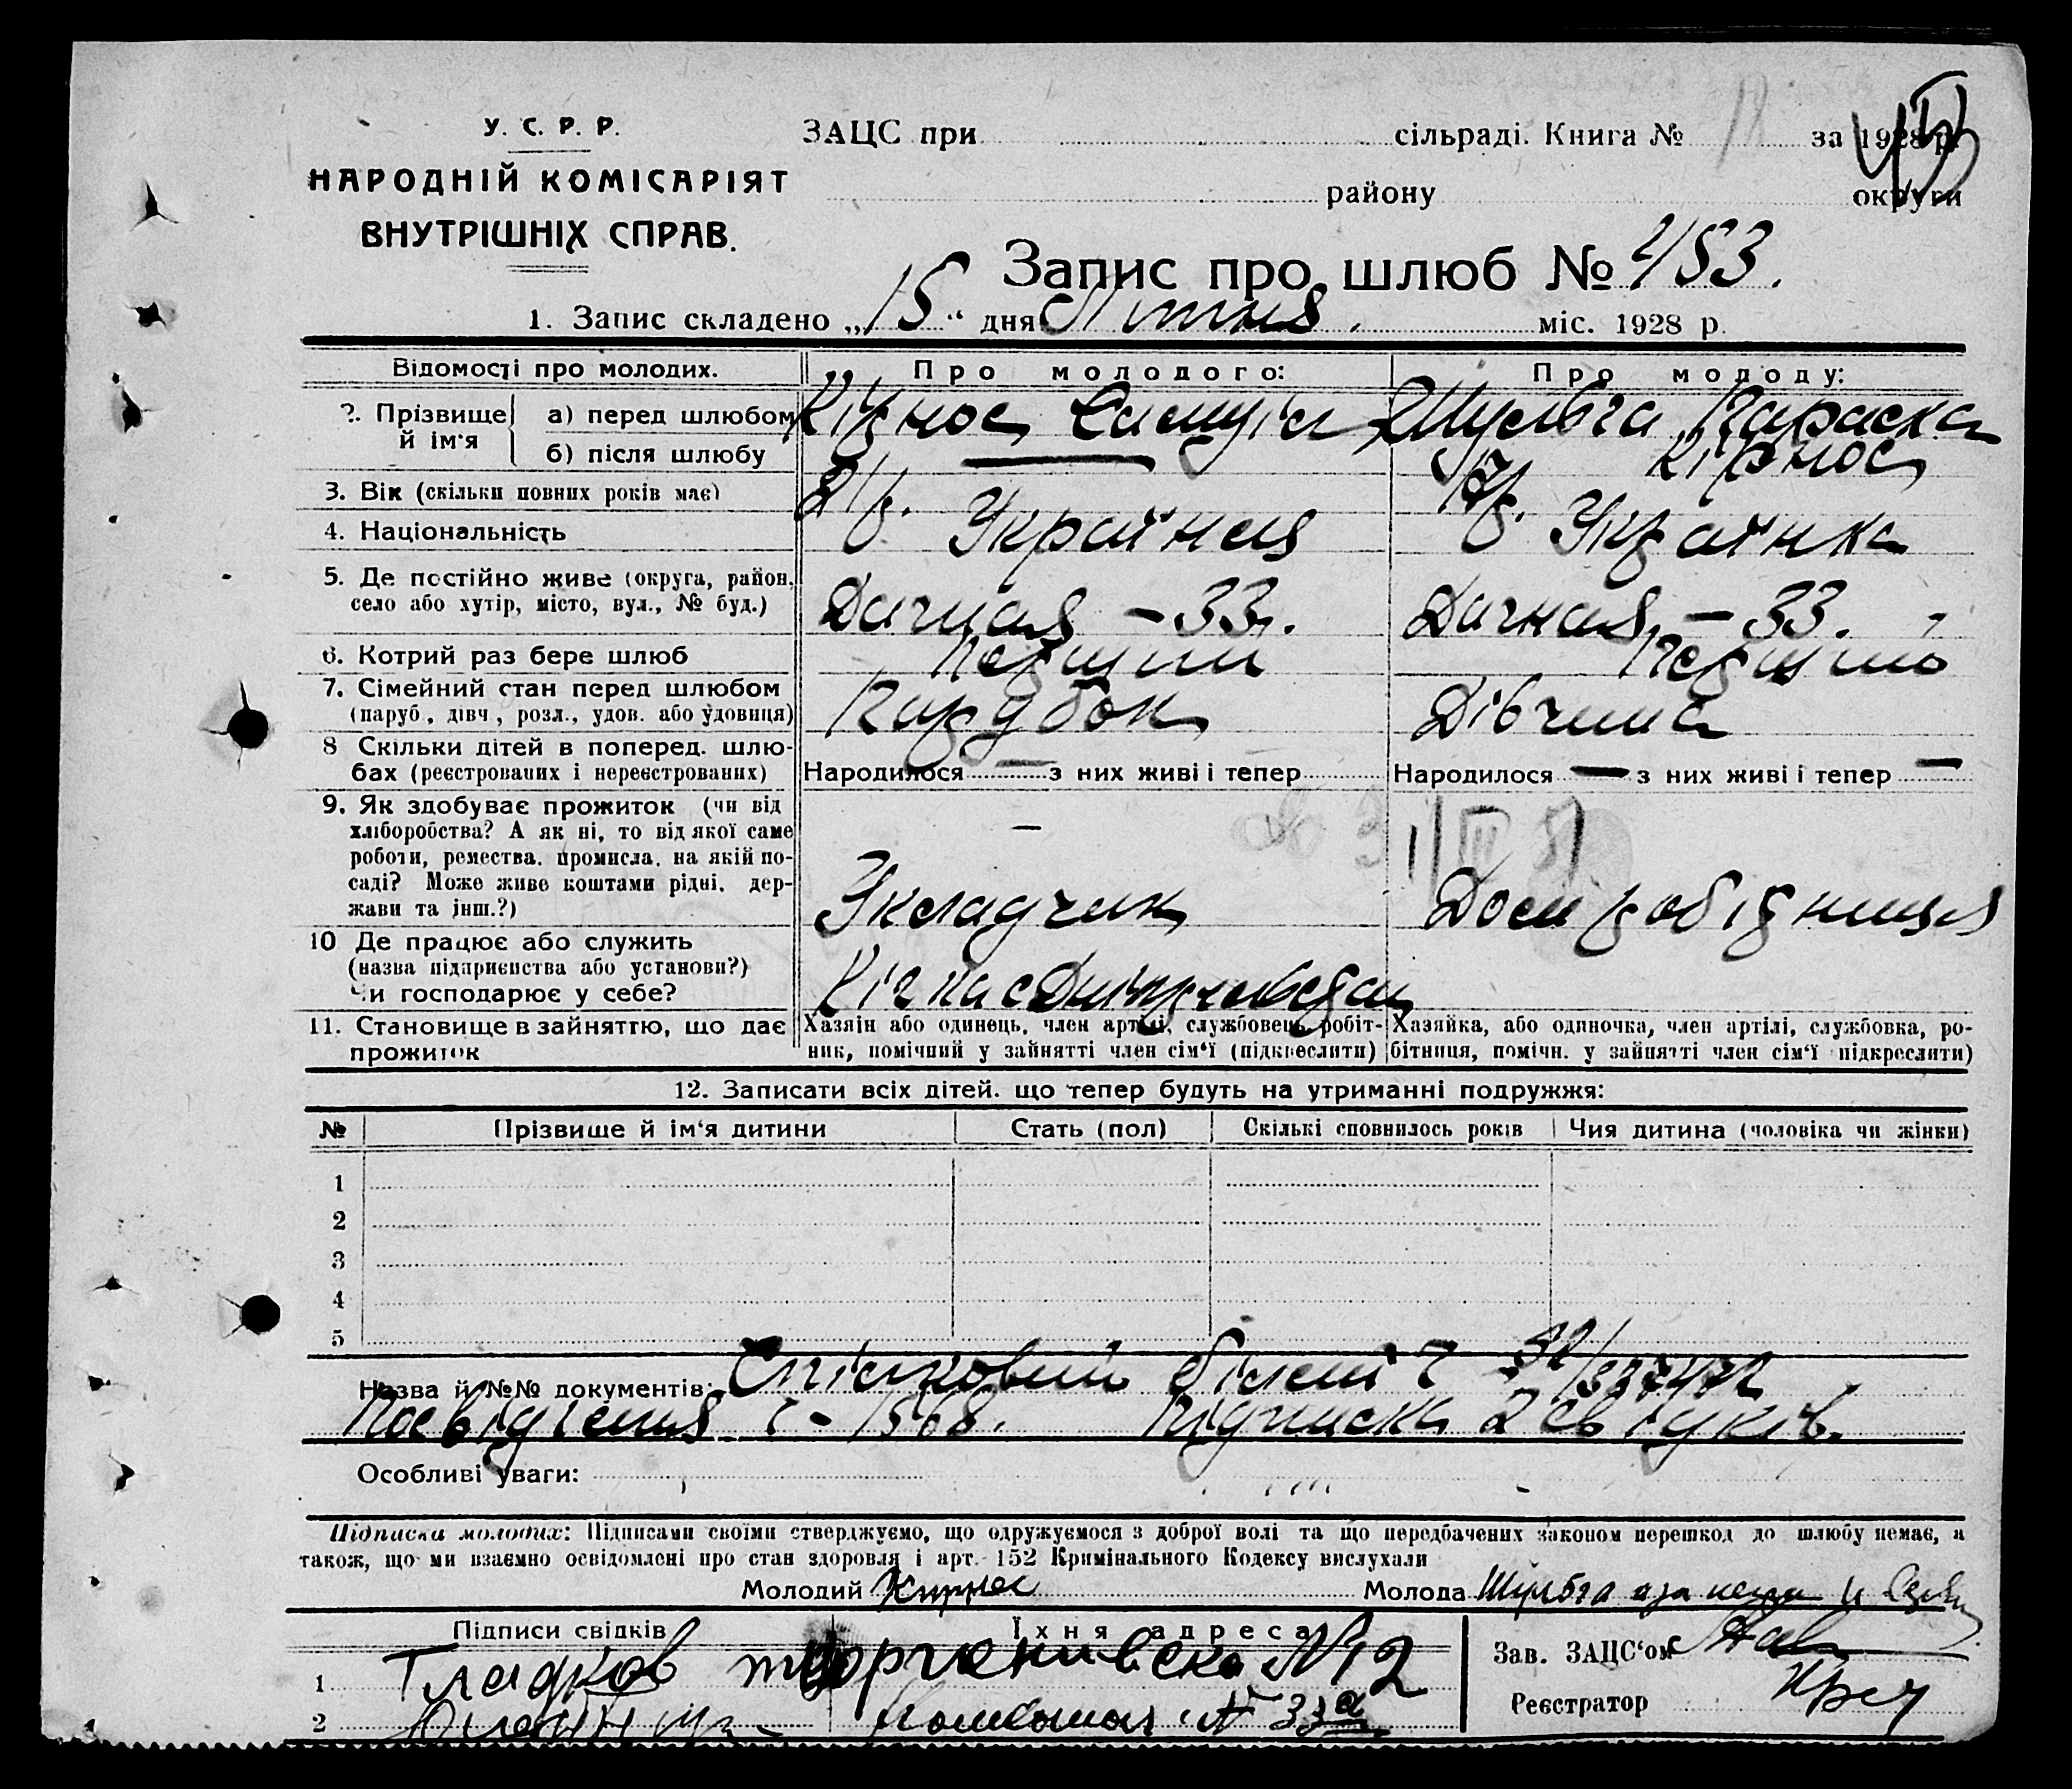 У. С. Р. Р.
НАРОДНІЙ КОМІСАРІЯТ
ВНУТРІШНІХ СПРАВ.
ЗАЦС при сільраді. Книга № за 1928 р.
району округи
Запис про шлюб № 453.
1. Запис складено „15“ дня Липня міс. 1928 р.
Відомості про молодих. Про молодого: Про молоду:
2. Прізвище й ім‘я а) перед шлюбом Кірнос Самуїл Шульга Параска
б) після шлюбу Кірнос
3. Вік (скільки повних років має) 21 р. 17 р.
4. Національність Українец Українка
5. Де постійно живе (округа, район, село або хутір, місто, вул., № буд.) Дачная – 33. Дачная – 33.
6. Котрий раз бере шлюб Перший Перший
7. Сімейний стан перед шлюбом Парубок Дівчина
(паруб., дівч., розл., удов. або удовиця)
8 Скільки дітей в поперед. шлю-
бах (реєстрованих і нереєстрованих) Народилося — з них живі і тепер Народилося — з них живі і тепер —
9. Як здобуває прожиток (чи від
хліборобства? А як ні, то від якої саме
роботи, ремества, промисла, на якій по-
саді? Може живе коштами рідні, дер-
жави та інш.?) Укладчик Дом робітниця
10 Де працює або служить
(назва підприємства або установи?)
Чи господарює у себе?
11. Становище в зайняттю, що дає прожиток
Хазяін або одинець, член артілі, службовець, робіт-
ник, помічний у зайнятті член сім‘ї (підкреслити)
Хазяйка, або одиночка, член артілі, службовка, ро-
бітниця, помічн. у зайнятті член сім‘ї підкреслити)
12. Записати всіх дітей, що тепер будуть на утриманні подружжя:
№ Прізвище й ім‘я дитини Стать (пол) Скількі сповнилось років Чия дитина (чоловіка чи жінки)
1
2
3
4
5
Назва й №№ документів: білет ч
Посвідчення ч – 1568. Підписка 2 свідків.
Особливі уваги:
Підписка молодих: Підписами своїми стверджуємо, що одружуємося з доброї волі та що передбачених законом перешкод до шлюбу немає, а
також, що ми взаємно освідомлені про стан здоровля і арт. 152 Кримінального Кодексу вислухали
Молодий Кирнос Молода Шульга
Підписи свідків Їхня адреса
Зав. ЗАЦС‘ом
1 Гладков №12
Реєстратор
2 № 33а